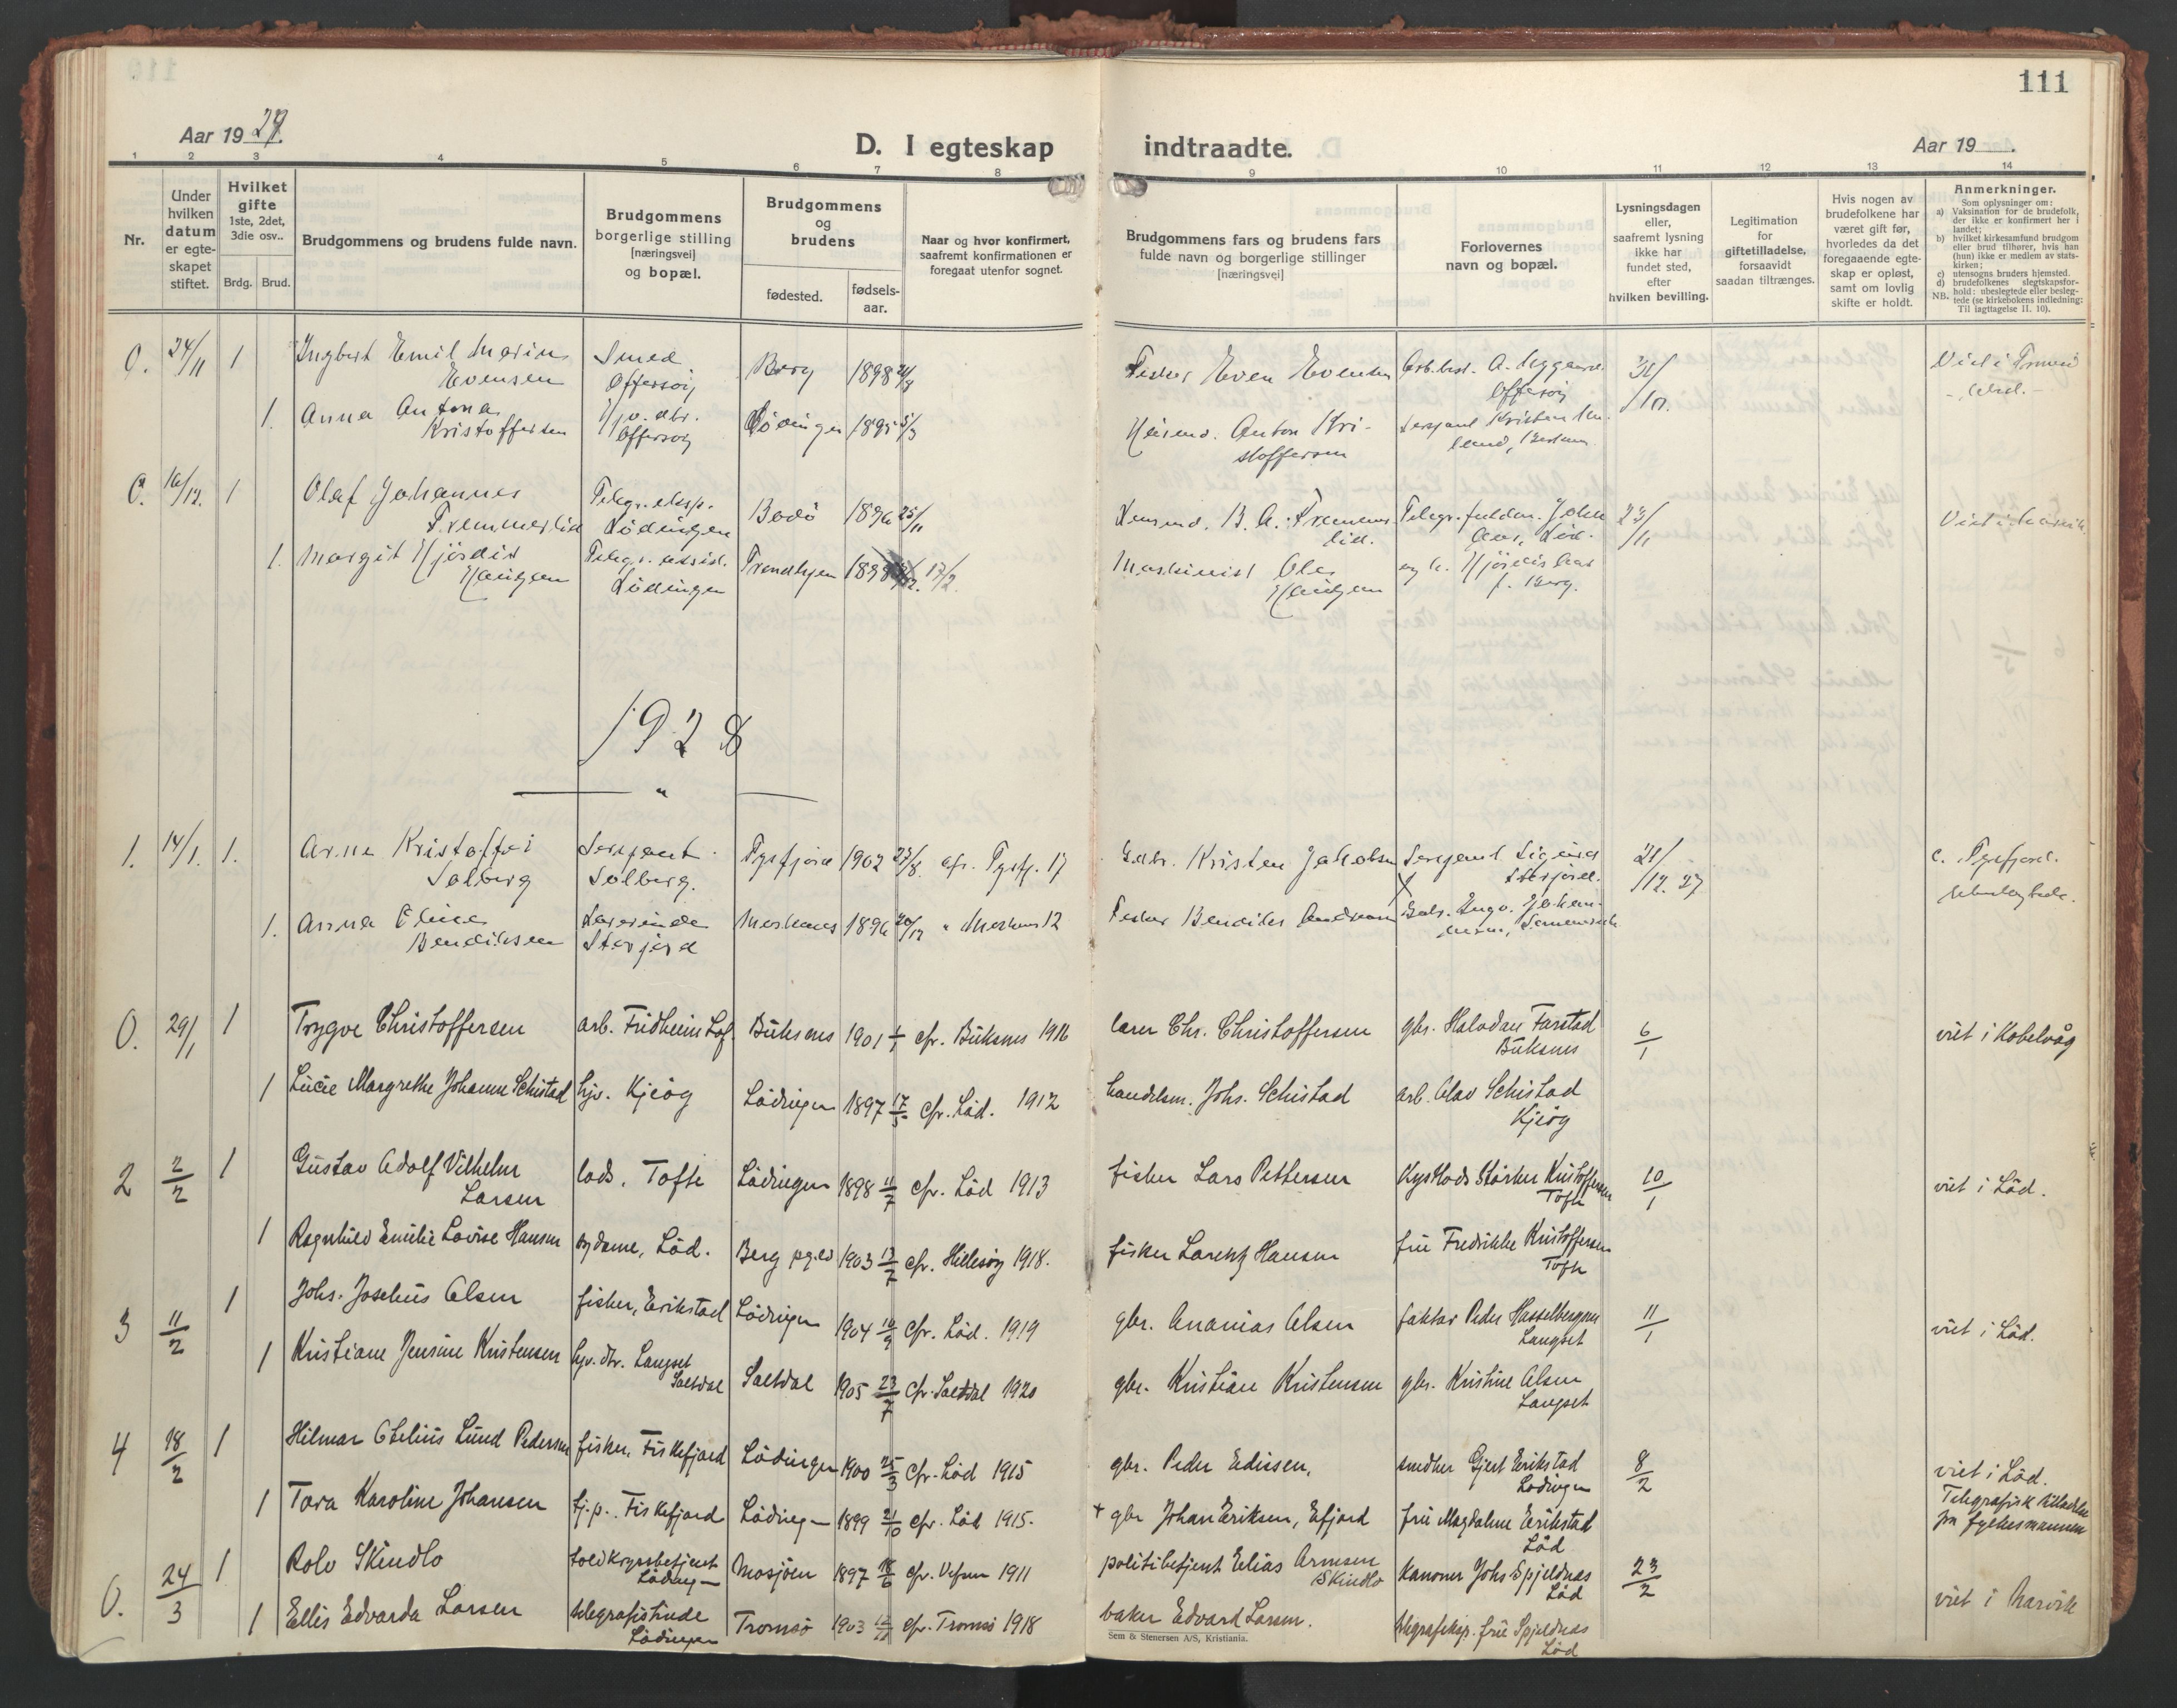 111
Aar 1927.
D. I egteskap indtraadte.
Aar 19 .
1 2 3 4 5 6 7 8 9 10 11 12 13 14
Nr.
Under hvilken datum er egteskapet stiftet.
Hvilket gifte 1ste, 2det, 3die osv..
Brdg. Brud.
Brudgommens og brudens fulde navn.
Brudgommens borgerlige stilling [næringsvei] og bopæl.
Brudgommens og brudens
fødested. fødsels-aar.
Naar og hvor konfirmert, saafremt konfirmationen er foregaat utenfor sognet.
Brudgommens fars og brudens fars fulde navn og borgerlige stillinger [næringsvei]
Forlovernes navn og bopæl.
Lysningsdagen eller, saafremt lysning ikke har fundet sted, efter hvilken bevilling.
Legitimation for giftetilladelse, forsaavidt saadan tiltrænges.
Hvis nogen av brudefolkene har været gift før, hvorledes da det foregaaende egteskap er opløst, samt om lovlig skifte er holdt.
Anmerkninger.
Som oplysninger om:
a) Vaksination for de brudefolk, der ikke er konfirmert her i landet;
b) hvilket kirkesamfund brudgom eller brud tilhører, hvis han (hun) ikke er medlem av statskirken;
c) utensogns bruders hjemsted.
d) brudefolkenes slegtskapsforhold: ubeslegtede eller beslegtede (se kirkebokens indledning: Til iagttagelse II. 10).
NB.
0. 24/11 1 Ingbert Emil Marin Evensen Smed Offersøy Berg 1898 Fisker Even Evensen Offersøy
1. Anna Antona Kristoffersen Hjv. dtr. Offersøy Lødingen 1895 5/3 Anton Kristoffersen
0. 16/12. 1 Olaf Johannes Tremmerlid Telegr. eksp. Lødingen Bodø 1896 25/11 23/11 Viet i Narvik
1. Margit Hjördis Haugen Telegr. assist. Lødingen Trondhjem 17/2. Maskinist Ole Haugen
1928
1. 14/1. 1. Arne Kristoffer Solberg Sersjant Solberg. Tysfjord 1902 23/8 cfr. Tysfj. 17 Gdbr. Kristen Jakobsen Sersjant Sigurd Storjord. 21/12. 27 c. Tysfjord. ubeslegtede.
1. Anna Eline Bendiksen Lærerinde Storjord Moskenes 1896 20/12 " Moskenes 12 Fisker Bendiks Andreassen
0. 29/1 1 Trygve Christoffersen arb. Fridheim Lof. Buksnes 1901 1/1 cfr. Buksnes 1916 lærer Chr. Christoffersen gbr. Halvdan Farstad Buksnes 6/1 viet i Kabelvåg
1 Lucie Margrethe Johanne Schistad hjv. Kjeøy Lødingen 1897 17/5 cfr. Lød. 1912 handelsm. Johs. Schistad arb. Olav Schistad Kjeøy
2 2/2 1 Gustav Adolf Vilhelm Larsen lods. Tofte Lødingen 1898 11/7 cfr. Lød 1913 fisker Lars Pettersen Kystlods Størker Kristoffersen Tofte 10/1 viet i Lød.
1 Ragnhild Emilie Lovise Hansen sydame, Lød. Berg 1903 13/7 cfr. Hillesøy 1918. fisker Lorentz Hansen fru Fredrikke Kristoffersen Tofte
3 11/2 1 Johs. Josefus Olsen fisker, Erikstad Lødingen 1904 10/9 cfr. Lød. 1919 gbr. Ananias Olsen faktor Peder Hasselbergsen Langset 11/1 viet i Lød.
1 Kristiane Jensine Kristensen hjv. dtr. Langset Saltdal Saltdal 1905 23/7 cfr. Saltdal 1920 gbr. Kristian Kristensen gbr. Kristine Olsen Langset
4 18/2 1 Hilmar Otelius Lund Pedersen fisker, Fiskefjord Lødingen 1900 25/3 cfr. Lød 1915 gbr. Peder Edissen, Gjert Erikstad Lødingen 8/2 viet i Lød. Telegrafisk tilladelse fra fylkesmannen
1 Tora Karoline Johansen tj.p. Fiskefjord Lødingen 1899 21/10 cfr. Lød 1915. + gbr Johan Eriksen, Efjord fru Magdalene Erikstad Lød
0. 24/3 1 Rolv Skindlo toldkrysbetjent Lødingen Mosjøen 1897 18/6 cfr. Vefsn 1911 politibetjent Elias Arnesen Skindlo Kanoner Johs Spjeldnes Lød 23/2 viet i Narvik
1 Ellis Edvarda Larsen telegrafistinde Lødingen Tromsø 1903 cfr. Tromsø 1918 baker Edvard Larsen. telegrafeksp. fru Spjeldnes Lød
Sem & Stenersen A/S, Kristiania.